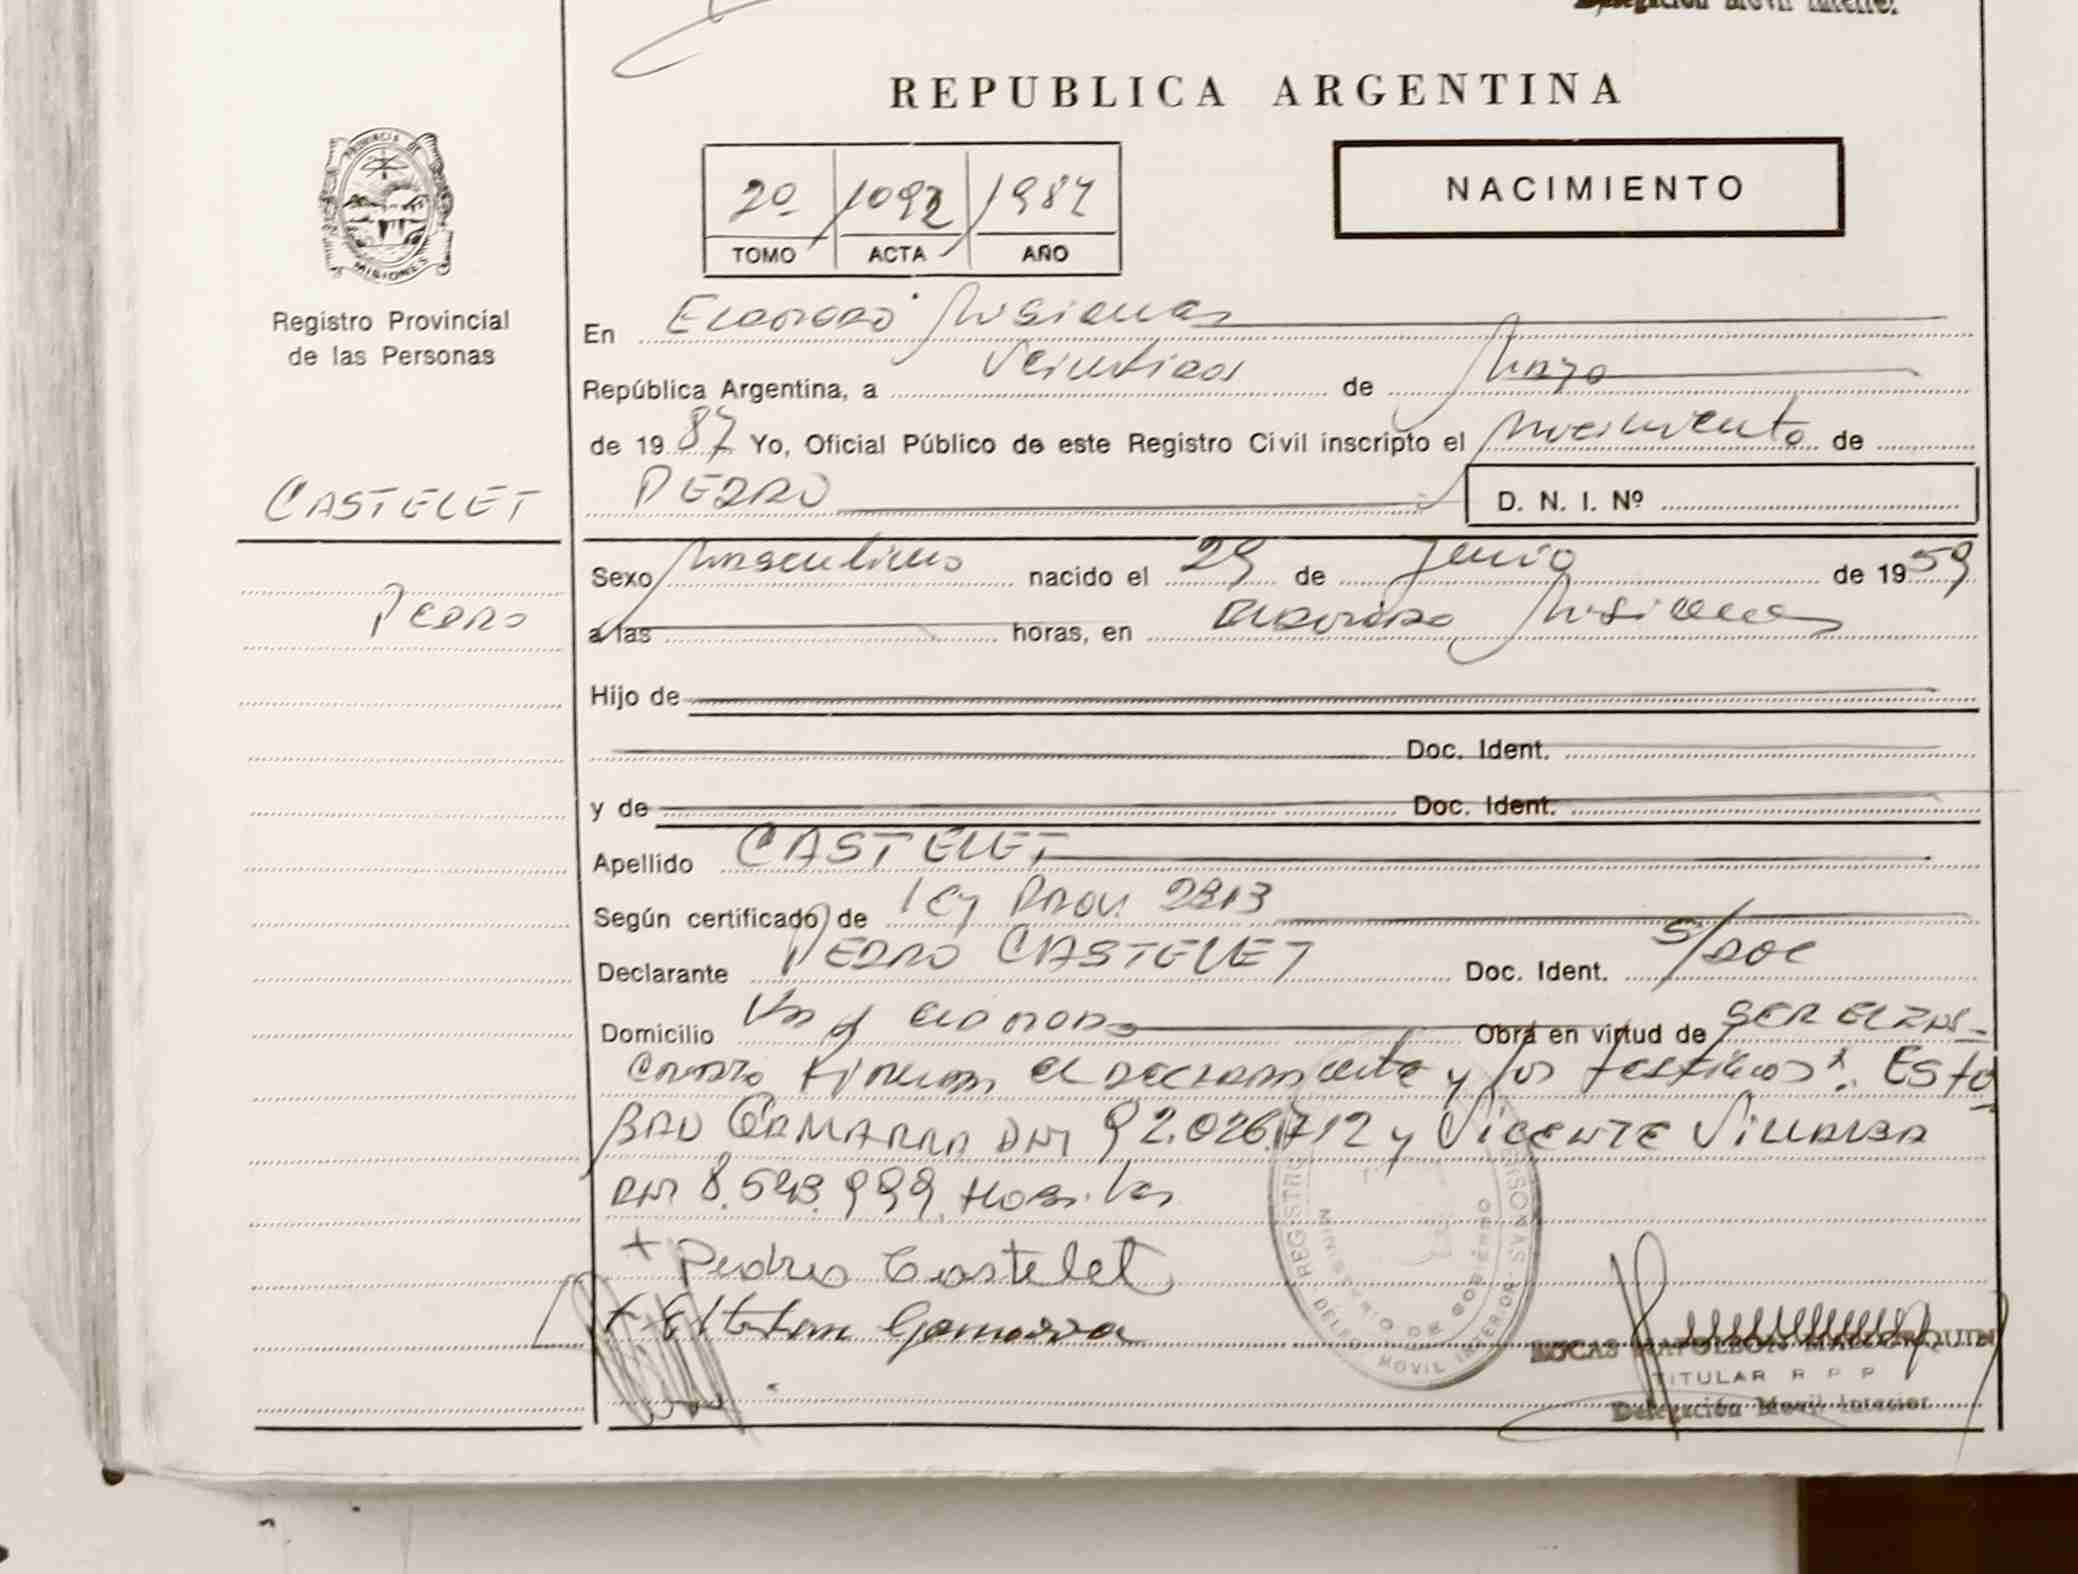 Delegación Movil Interior
REPUBLICA ARGENTINA
PROVINCIA DE
MISIONES
Registro Provincial
de las Personas
NACIMIENTO
2º 1092 1987
TOMO ACTA AÑO
En Eldorado Misiones
República Argentina, a Veintidos de Mayo
de 1987 Yo, Oficial Público de este Registro Civil inscripto el Nacimiento de
CASTELET
PEDRO D. N. I. Nº
Sexo Masculino nacido el 29 de Junio de 1959
Pedro
a las horas, en Eldorado Misiones
Hijo de
Doc. Ident.
y de Doc. Ident.
Apellido CASTELET
Según certificado de Ley Prov. 2213
Declarante PEDRO CASTELET Doc. Ident. S/DOC
Domicilio Eldorado Obra en virtud de SER EL INS-
cripto Firman el declarante y los testigos: Este
BAN GAMARRA DNI 92.026.712 y VICENTE VILLALBA
DNI 8.543.999 Habiles
+ Pedro Castelet
x Esteban Gamarra
REGISTRO PERSONAS
MINISTERIO DE GOBIERNO
DELEG. MOVIL INTERIOR
LUCAS NAPOLEON
TITULAR R P P
Delegación Movil Interior